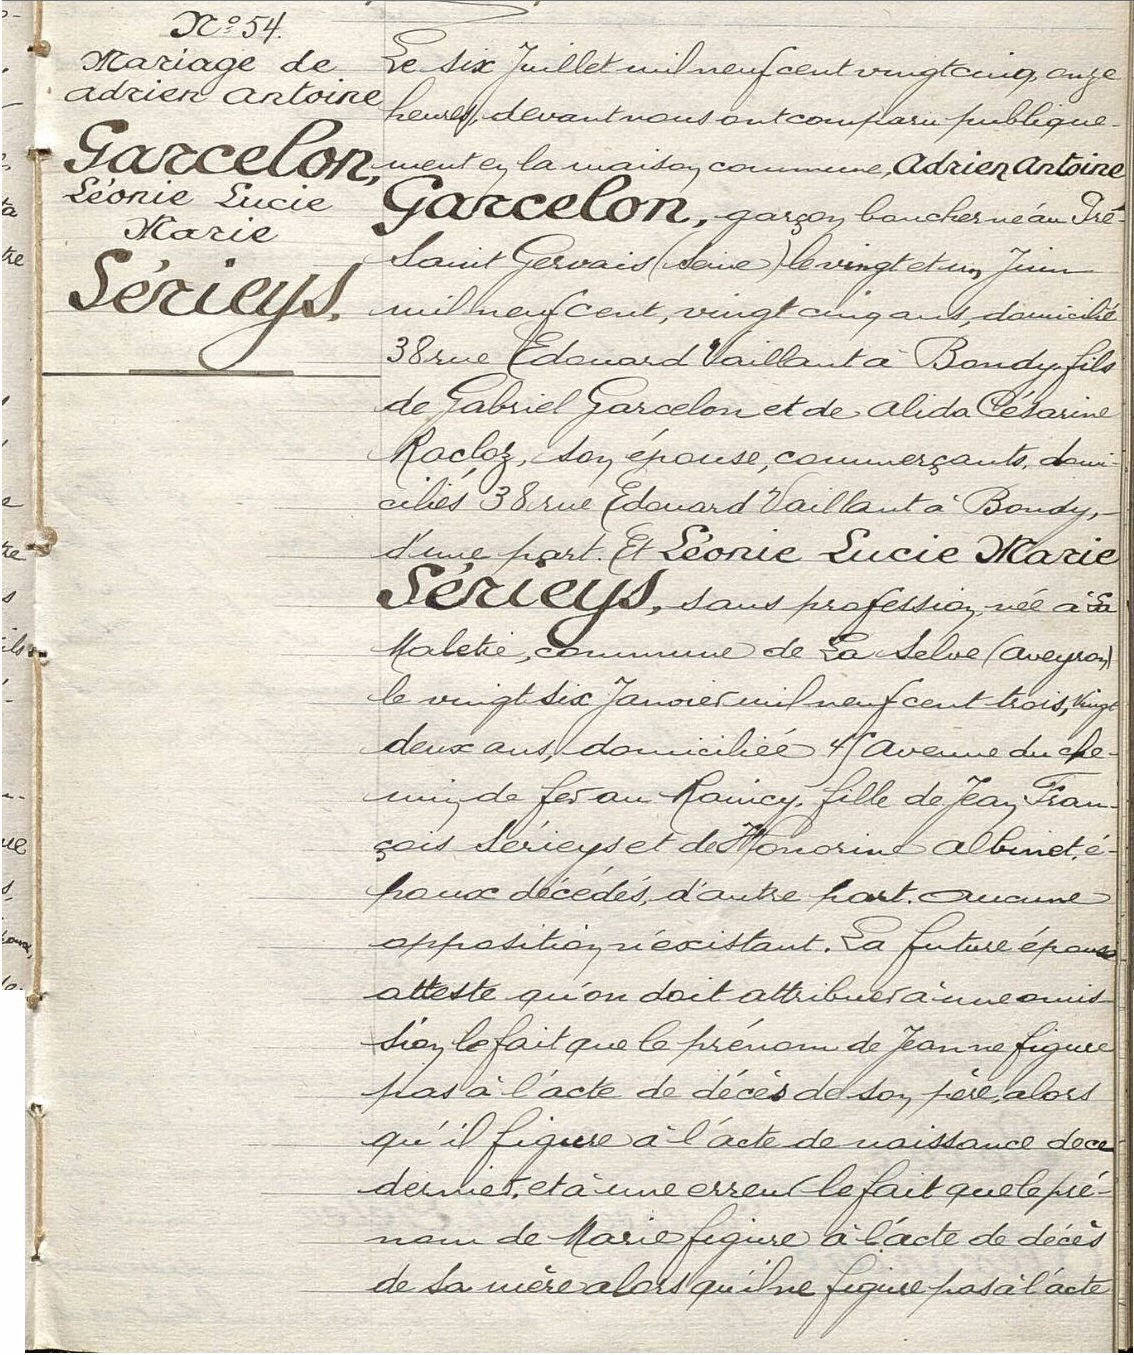 N° 54.
Mariage de
Adrien Antoine
Garcelon,
Léonie Lucie
Marie
Sérieys.
Le six Juillet mil neuf cent vingt cinq, onze
heures, devant nous ont comparu publique-
ment en la maison commune, Adrien Antoine
Garcelon, garçon boucher né au Pré-
Saint Gervais (Seine) le vingt et un Juin
mil neuf cent, vingt cinq ans, domicilié
38 rue Edouard Vaillant à Bondy, fils
de Gabriel Garcelon et de Alida Césarine
Racloz, son épouse, commerçants, domi-
ciliés 38 rue Edouard Vaillant à Bondy,
d'une part. Et Léonie Lucie Marie
Sérieys, sans profession, née à La
Maletie, commune de La Selve (Aveyron)
le vingt six Janvier mil neuf cent trois, vingt
deux ans, domiciliée Avenue du che-
min de fer au Raincy, fille de Jean Fran-
çois Sérieys et de Honorine Albinet, é-
poux décédés, d'autre part. Aucune
opposition n'existant. La future épouse
atteste qu'on doit attribuer à une omis-
sion le fait que le prénom de Jean ne figure
pas à l'acte de décès de son père, alors
qu'il figure à l'acte de naissance de ce
dernier, et à une erreur le fait que le pré-
nom de Marie figure à l'acte de décès
de sa mère alors qu'il ne figure pas à l'acte